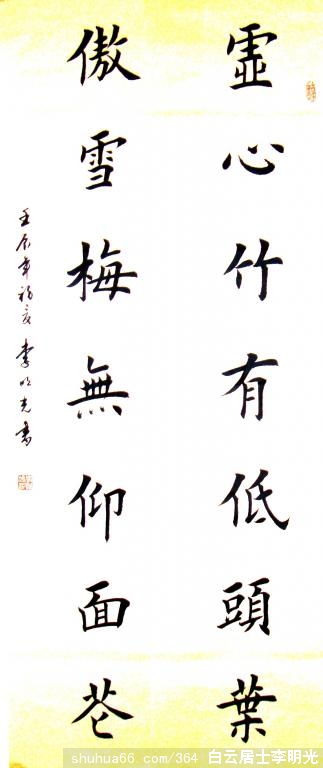 虛心竹有低頭葉
傲雪梅無仰面花
壬辰年初夏 李明光書
shuhua66.com/364 白云居士李明光